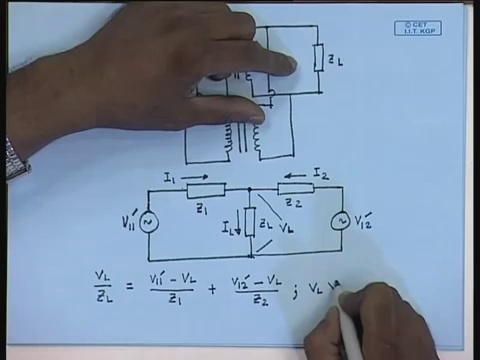 © CET
I.I.T. KGP
Z_L
I_1
I_2
Z_1
Z_2
V_11'
I_L
Z_L
V_L
V_12'
V_L/Z_L = (V_11' - V_L)/Z_1 + (V_12' - V_L)/Z_2 ; V_L